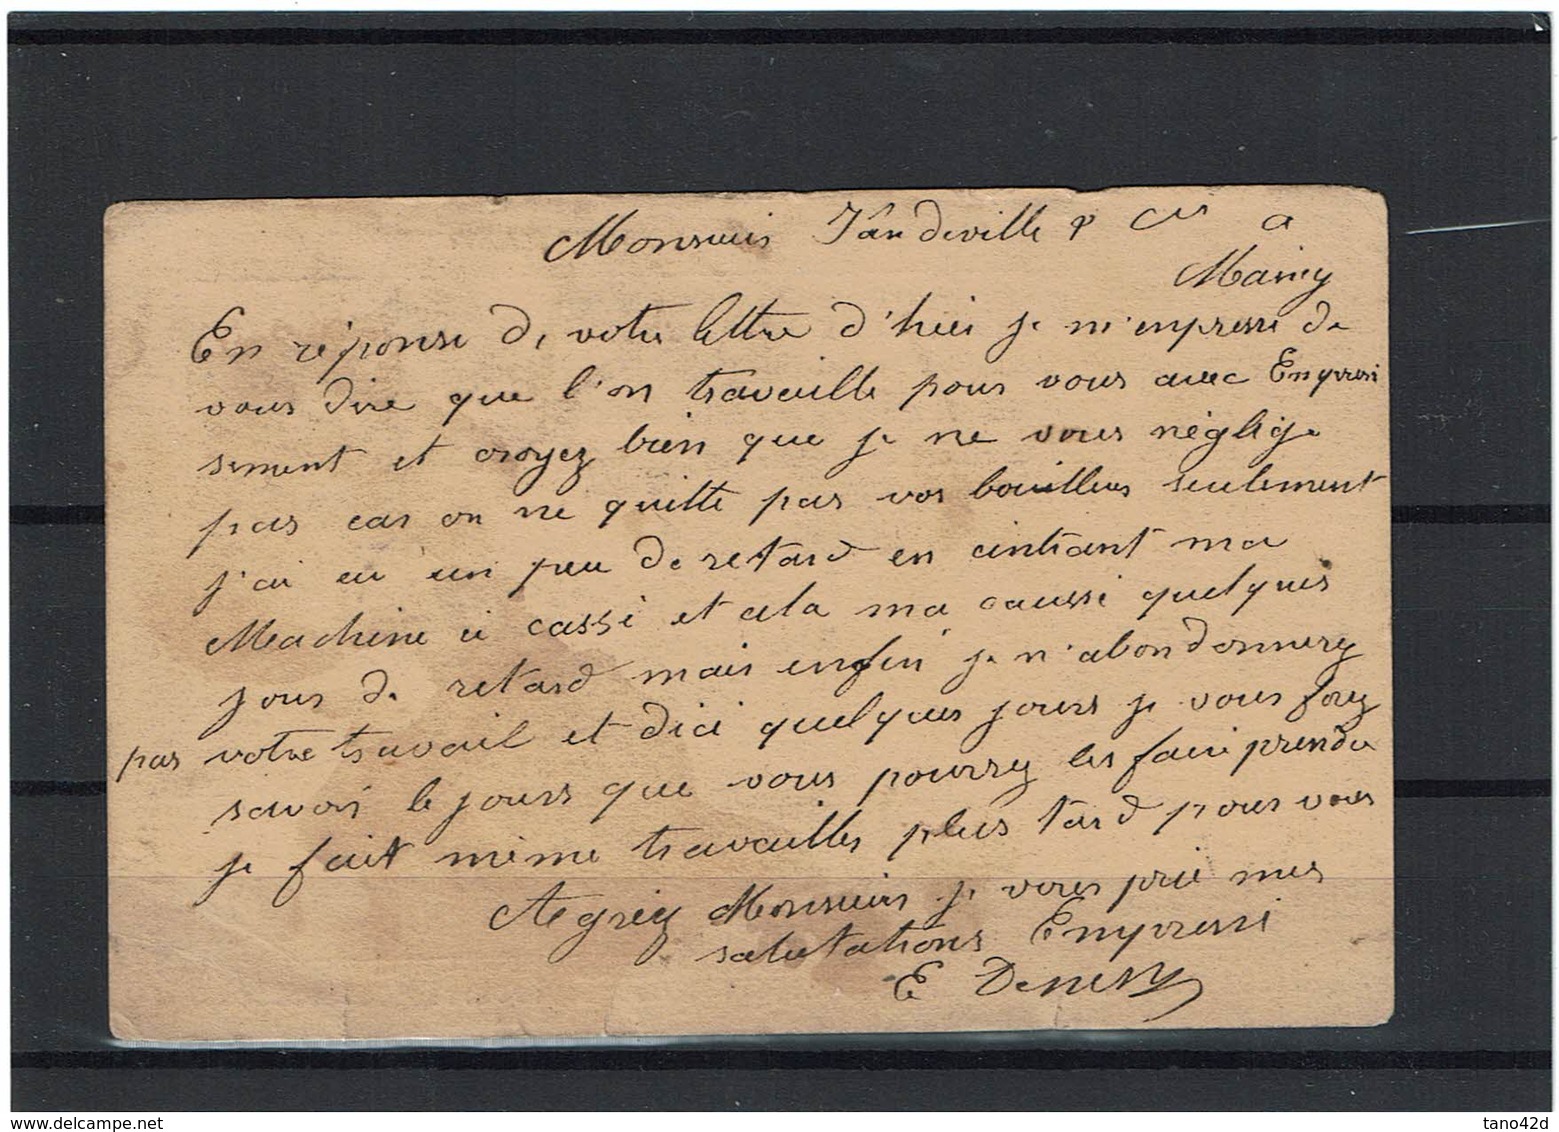 Monsieur Vandeville & Cie a
Maincy
En réponse de votre lettre d'hier je m'enpresse de
vous dire que l'on travaille pour vous avec Enpressi
sement et croyez bien que je ne vous néglige
pas car on ne quitte pas vos bouilleurs seulement
j'ai eu un peu de retard en cintrant ma
Machine à cassé et cela ma causse quelques
jour de retard mais enfin je n'abondonnerez
pas votre travail et dici quelques jours je vous ferez
savoir le jours que vous pourrez les faire prendre
je fait même travailler plus tard pour vous
Agréez Monsieur je vous prie mes
salutations Empressé
E
delcampe.net
tano42d